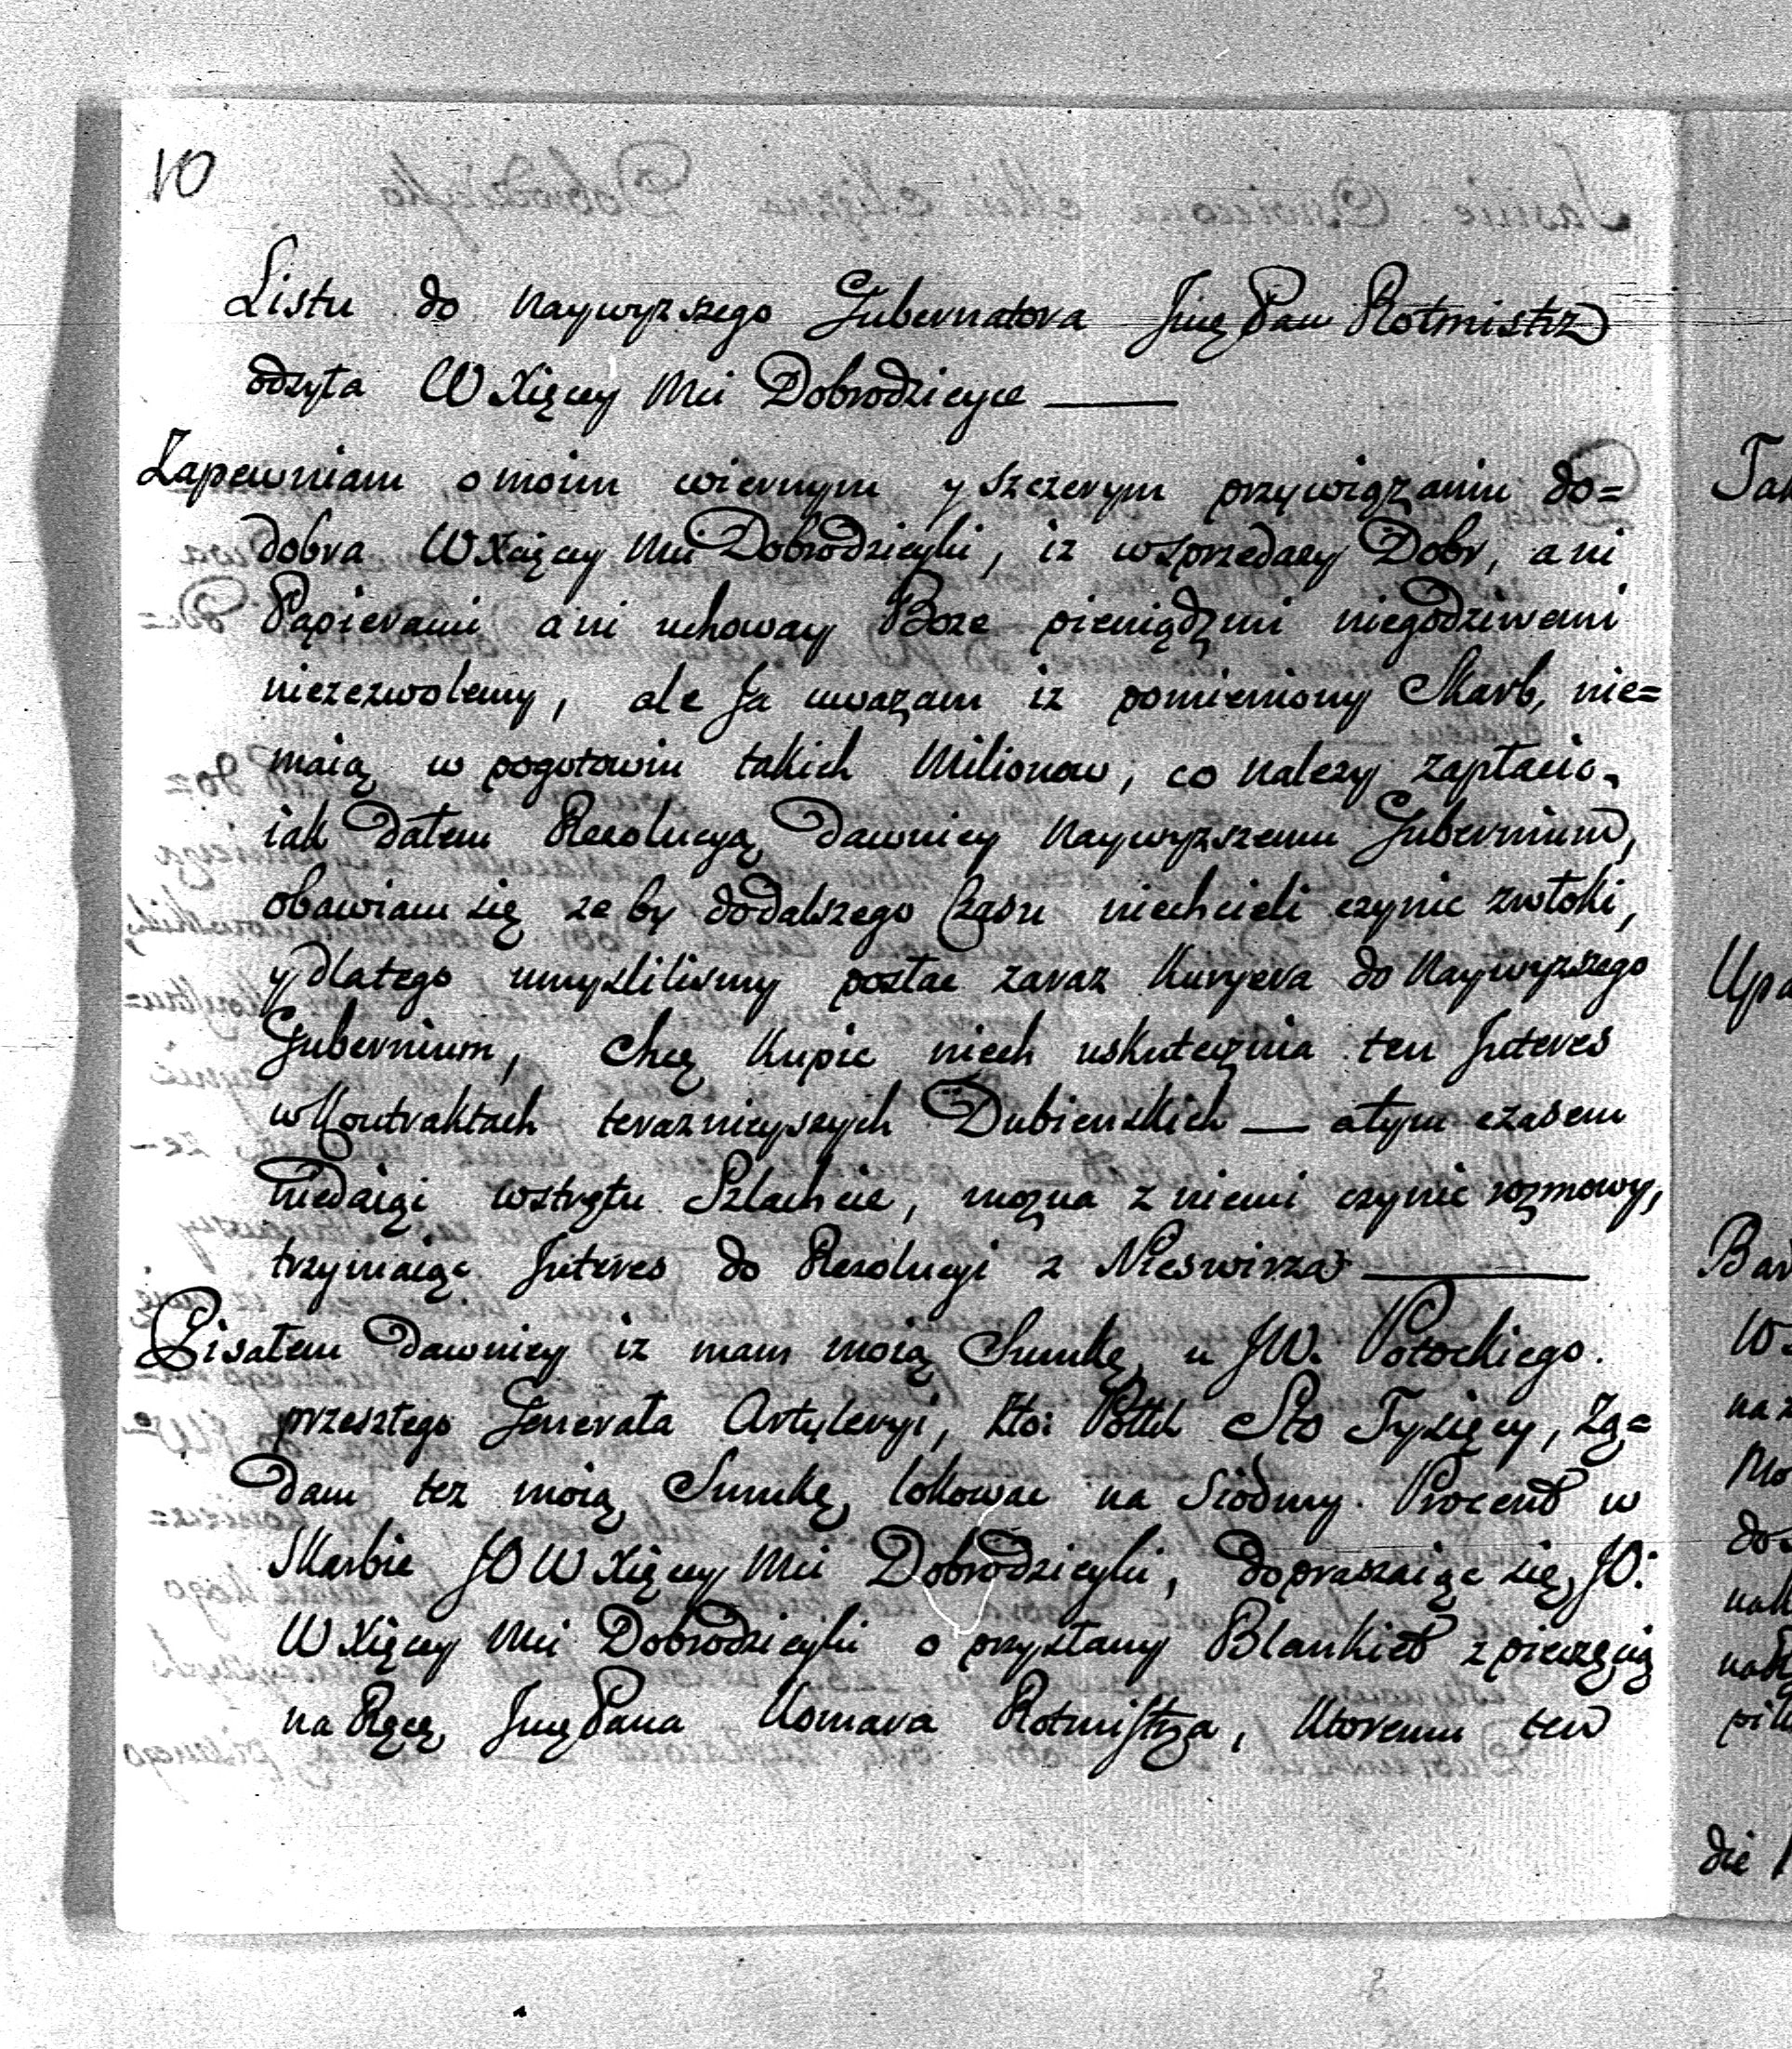 10
Listu do Naywyzszego Gubernatora Jmę Pan Rotmistrz
odzyła W Xięcey Mci Dobrodzieyce —
Zapewniam o moim wiernym y szczerym przywiązaniu do=
dobra W Xcięcey Mci Dobrodzieyki, iz wzprzedazy Dobr, ani
Papierami ani uchoway Boze pieniądzmi niegodziwemi
niezezwolemy, ale Ja uwazam iz pomieniony Skarb, nie=
maią w pogotowiu takich Milionow, co nalezy zapłacic.
iak dałem Rezolucyą, Dawniey Naywyzszemu Gubernium,
obawiam się zeby dodalszego Czasu niechcieli czynic zwłoki,
y dlatego umysliliwmy posłac zaraz Kuryera do Naywyzszego
Gubernium, chcą kupic niech uskuteczniá ten Jnteres
w Kontraktach teraznieyszych Dubienskich — atym czasem
niedaiąc wstrętu Szlachcie, mozna z niemi czynic rozmowy,
trzymaiąc Jnteres do Rezolucyi z Nieswirza —
Pisałem Dawniey iz mam moią Sumkę, u JW. Potockiego.
przeszłego Generała Artyleryi, Zło: Pollch Sto Tysięcy, Zą=
dam tez moią Sumkę, lokowac na Siodmy. Procent w
Skarbie JO W Xięcey Mci Dobrodzieyki, dopraszaiąc się, JO.
W Xięcey Mci Dobrodzieyki o przysłany Blankiet z pieczęcią
na Ręce, Jmę Pana Komara Rotmistrza, Ktoremu ten
Upa
die